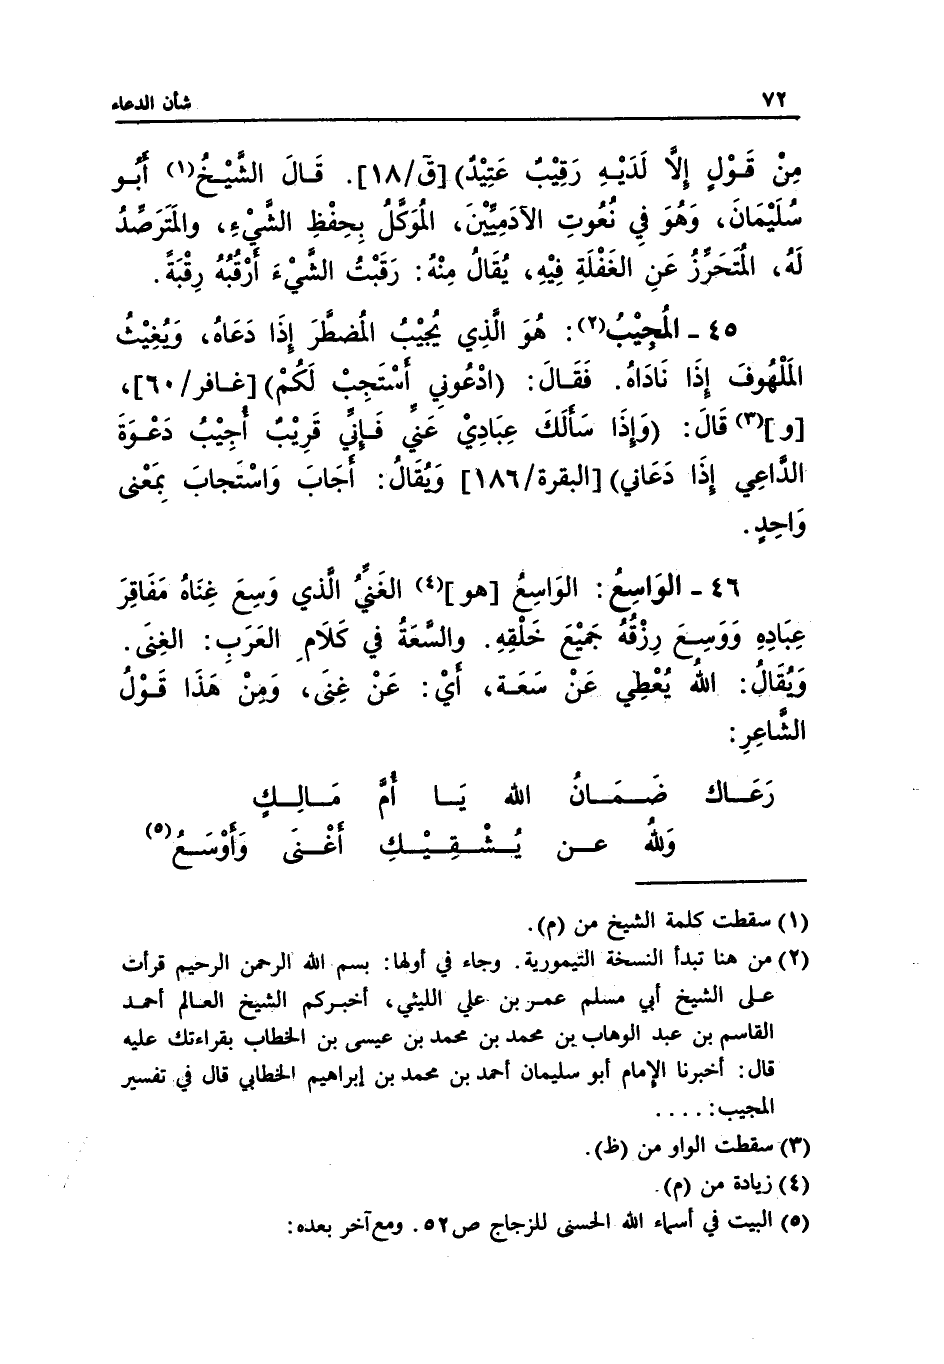 ٧٢ شأن الدعاء
مِنْ قَوْلٍ إِلَّا لَدَيْهِ رَقِيْبٌ عَتِيْدٌ) [قۤ/١٨]. قَالَ الشَّيْخُ(١) أَبُو
سُلَيْمَانَ، وَهُوَ فِي نُعُوتِ الآدَمِيِّيْنَ، المُوَكَّلُ بِحِفْظِ الشَّيْءِ، والمَتَرَصِّدُ
لَهُ، المُتَحَرِّزُ عَنِ الغَفْلَةِ فِيْهِ، يُقَالُ مِنْهُ: رَقَبْتُ الشَّيْءَ أَرْقُبُهُ رِقْبَةً.
٤٥ - المُجِيْبُ(٢): هُوَ الَّذِي يُجِيْبُ المُضطَرَّ إِذَا دَعَاهُ، وَيُغِيْثُ
المَلْهُوفَ إِذَا نَادَاهُ. فَقَالَ: (ادْعُونِي أَسْتَجِبْ لَكُمْ) [غافر/٦٠]،
[و](٣) قَالَ: (وَإِذَا سَأَلَكَ عِبَادِيْ عَنِّي فَإِنِّي قَرِيْبٌ أُجِيْبُ دَعْوَةَ
الدَّاعِي إِذَا دَعَاني) [البقرة/١٨٦] وَيُقَالُ: أَجَابَ وَاسْتَجابَ بِمَعْنى
وَاحِدٍ.
٤٦ - الوَاسِعُ: الوَاسِعُ [هو](٤) الغَنِيُّ الَّذي وَسِعَ غِنَاهُ مَفَاقِرَ
عِبَادِهِ وَوَسِعَ رِزْقُهُ جَمِيْعَ خَلْقِهِ. والسَّعَةُ في كَلَامِ العَرَبِ: الغِنَى.
وَيُقَالُ: اللهُ يُعْطِي عَنْ سَعَة، أَيْ: عَنْ غِنَى، وَمِنْ هَذَا قَوْلُ
الشَّاعِرِ:
رَعَاك ضَمَانُ الله يَا أُمَّ مَالِكٍ
وَللهُ عن يُشْقِيْكِ أَغْنَى وَأَوْسَعُ(٥)
(١) سقطت كلمة الشيخ من (م).
(٢) من هنا تبدأ النسخة التيمورية. وجاء في أولها: بسم الله الرحمن الرحيم قرأت
على الشيخ أبي مسلم عمر بن علي الليثي، أخبركم الشيخ العالم أحمد
القاسم بن عبد الوهاب بن محمد بن محمد بن عيسى بن الخطاب بقراءتك عليه
قال: أخبرنا الإمام أبو سليمان أحمد بن محمد بن إبراهيم الخطابي قال في تفسير
المجيب: ....
(٣) سقطت الواو من (ظ).
(٤) زيادة من (م).
(٥) البيت في أسماء الله الحسنى للزجاج ص٥٢. ومع آخر بعده: